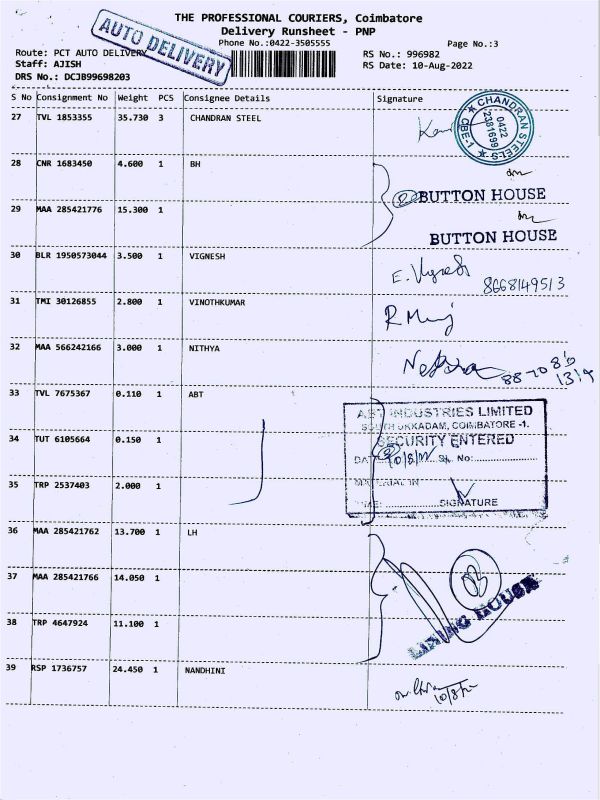 THE PROFESSIONAL COURIERS, Coimbatore
Delivery Runsheet - PNP
AUTO DELIVERY
Phone No.:0422-3505555
Page No.:3
Route: PCT AUTO DELIVERY
RS No.: 996982
Staff: AJISH
RS Date: 10-Aug-2022
DRS No.: DCJB99698203
S No Consignment No Weight PCS Consignee Details Signature
27 TVL 1853355 35.730 3 CHANDRAN STEEL
CHANDRAN STEELS
0422
2381699
CBE-1
28 CNR 1683450 4.600 1 BH
BUTTON HOUSE
29 MAA 285421776 15.300 1
BUTTON HOUSE
30 BLR 1950573044 3.500 1 VIGNESH
E. Vignesh
8668149513
31 TMI 30126855 2.800 1 VINOTHKUMAR
32 MAA 566242166 3.000 1 NITHYA
33 TVL 7675367 0.110 1 ABT
ABT INDUSTRIES LIMITED
SOUTH UKKADAM, COIMBATORE -1.
SECURITY ENTERED
34 TUT 6105664 0.150 1
10/8/22 SL. No:
35 TRP 2537403 2.000 1
MATERIAL IN
SIGNATURE
36 MAA 285421762 13.700 1 LH
37 MAA 285421766 14.050 1
03
LINING HOUSE
38 TRP 4647924 11.100 1
39 RSP 1736757 24.450 1 NANDHINI
10/8/22